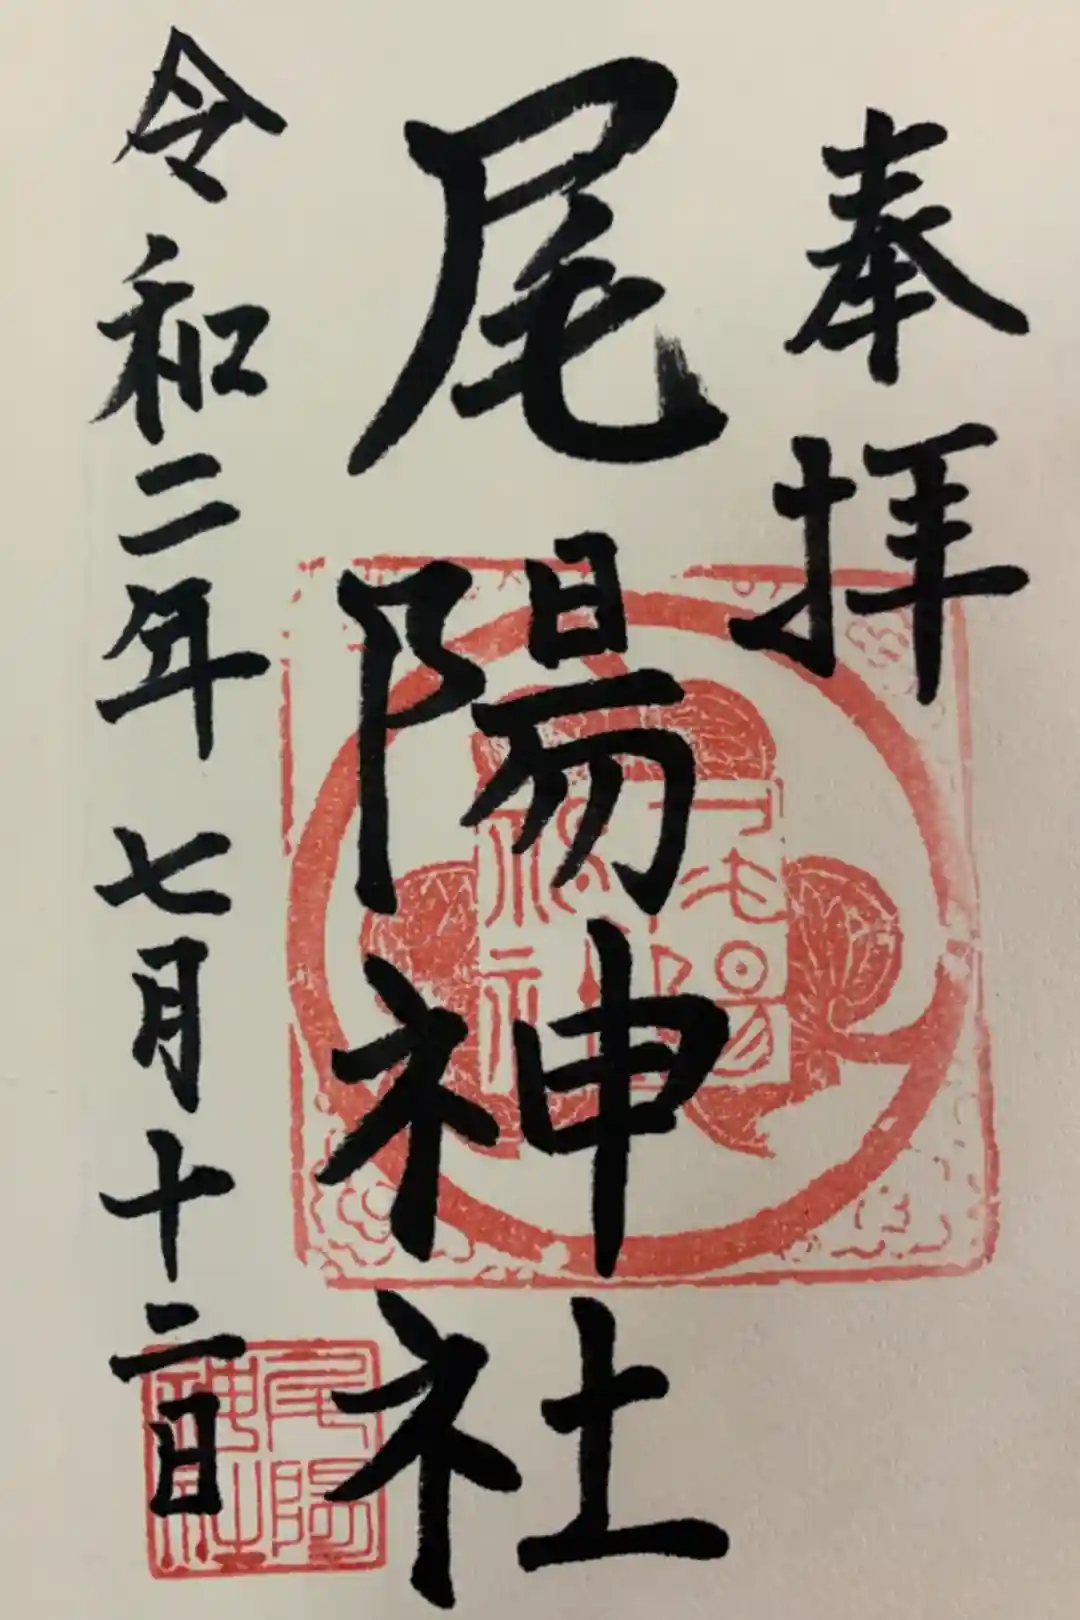 奉拝
尾陽神社
令和二年七月十二日
尾陽神社
尾陽神社